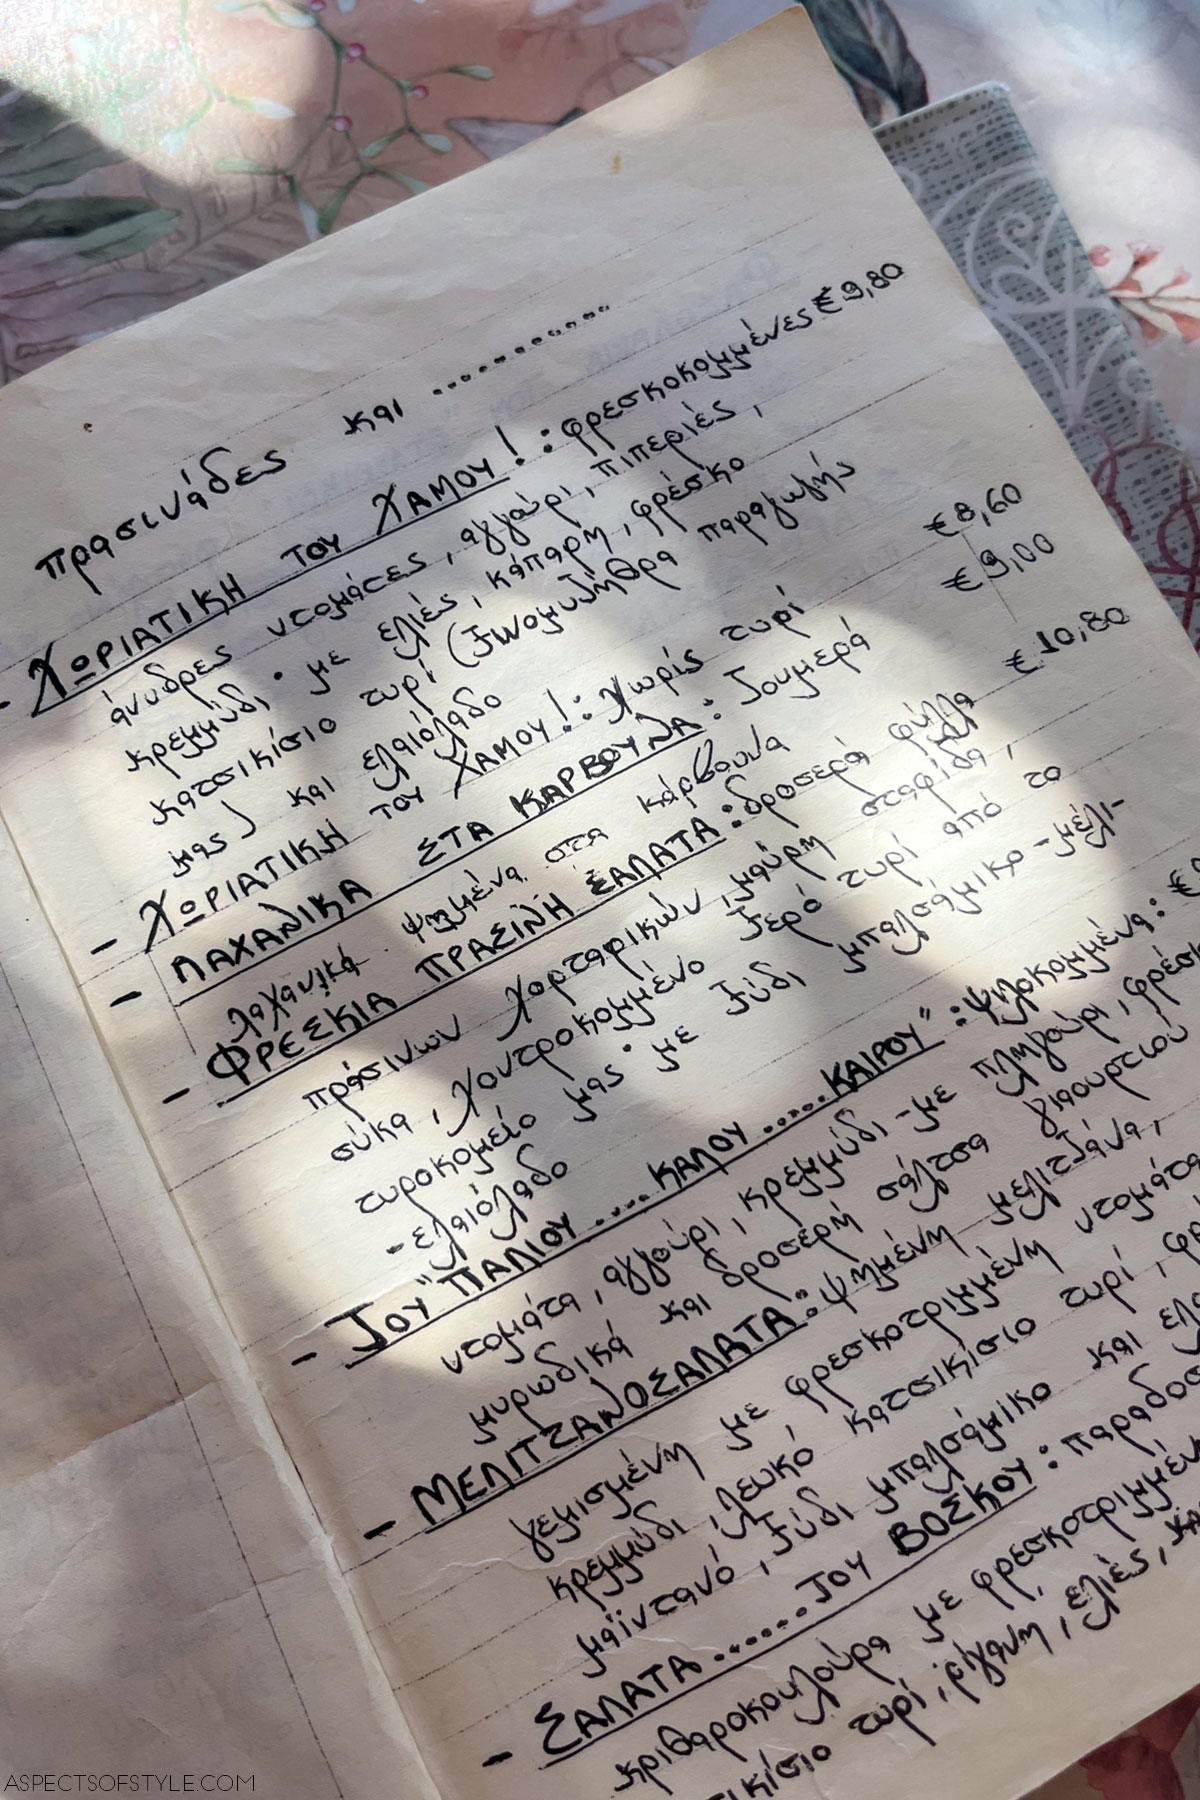 πρασινάδες και ............
- ΧΩΡΙΑΤΙΚΗ ΤΟΥ ΧΑΜΟΥ! : φρεσκοκομμένες €9,80
άνυδρες ντομάτες, αγγούρι, πιπεριές,
κρεμμύδι · με ελιές, κάπαρη, φρέσκο
κατσικίσιο τυρί (ξινομυζήθρα παραγωγής
μας) και ελαιόλαδο
- ΧΩΡΙΑΤΙΚΗ ΤΟΥ ΧΑΜΟΥ! : χωρίς τυρί €8,60
- ΛΑΧΑΝΙΚΑ ΣΤΑ ΚΑΡΒΟΥΝΑ : ζουμερά €9,00
λαχανικά ψημένα στα κάρβουνα
- ΦΡΕΣΚΙΑ ΠΡΑΣΙΝΗ ΣΑΛΑΤΑ : δροσερά φύλλα €10,80
πράσινων χορταρικών, μαύρη σταφίδα,
σύκα, χοντροκομμένο ξερό τυρί από το
τυροκομείο μας · με ξύδι μπαλσάμικο - μέλι -
- ελαιόλαδο
- ΤΟΥ "ΠΑΛΙΟΥ .... ΚΑΛΟΥ ..... ΚΑΙΡΟΥ" : ψιλοκομμένα : €
ντομάτα, αγγούρι, κρεμμύδι - με πληγούρι,
μυρωδικά και δροσερή σάλτσα γιαουρτιού
- ΜΕΛΙΤΖΑΝΟΣΑΛΑΤΑ : ψημένη μελιτζάνα,
γεμισμένη με φρεσκοτριμμένη ντομάτα
κρεμμύδι, λευκό κατσικίσιο τυρί,
μαϊντανό, ξύδι μπαλσάμικο και
- ΣΑΛΑΤΑ ...... ΤΟΥ ΒΟΣΚΟΥ :
κριθαροκουλούρα με
τυρί, ρίγανη, ελιές,
ASPECTSOFSTYLE.COM